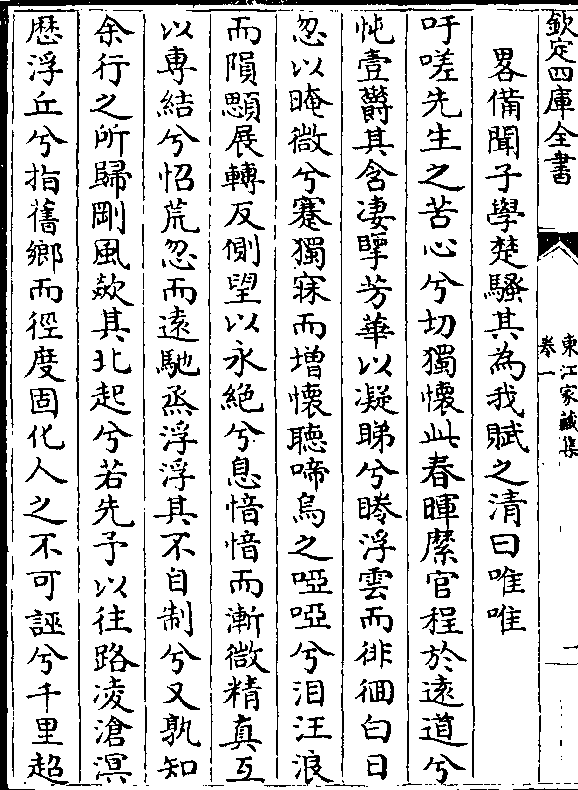 欽定四庫全書
東江家藏集
卷一
畧備聞子學楚騷其為我賦之清曰唯唯
吁嗟先生之苦心兮切獨懷此春暉縻官程於遠道兮
忳壹欝其含凄睪芳華以凝睇兮睠浮雲而徘徊白日
忽以晻微兮蹇獨寐而增懷聽啼烏之啞啞兮泪汪浪
而隕顋展轉反側望以永絕兮息愔愔而漸微精真互
以専結兮怊荒忽而遠馳烝浮浮其不自制兮又孰知
余行之所歸剛風歘其北起兮若先予以往路凌滄溟
歴浮丘兮指舊鄉而徑度固化人之不可誣兮千里超